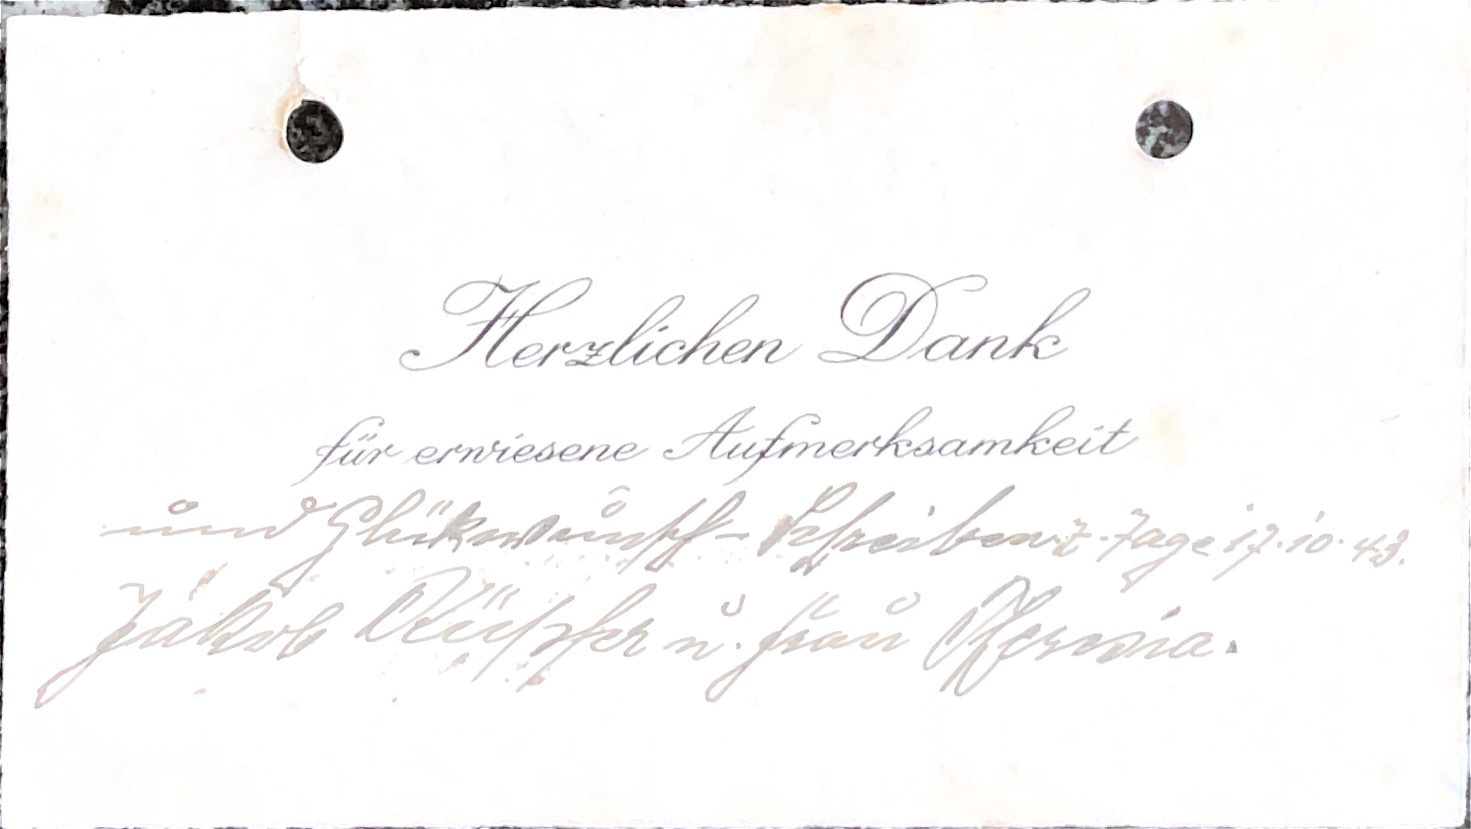 Herzlichen Dank
für erwiesene Aufmerksamkeit
und Glükwunsch-Schreiben z. Tage 17.10.43.
Jakob u. Frau